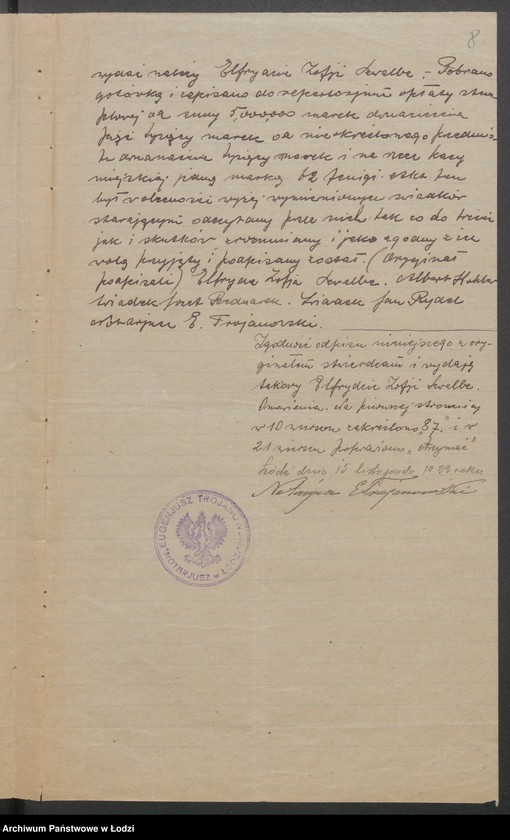 8
wydać należy Elfrydzie Zofji Szwalbe. Pobrano
gotówką i zapisano do repertorjum opłaty stem
plowej od sumy 5,000,000 marek
tysięcy marek od nieokreślonego przedmio
tu tysięcy marek i na rzecz kasy
miejskiej jedną markę 62 fenigi. Akt ten
był w obecności wyżej wymienionych świadków
stawającym odczytany przez nich tak co do treści
jak i skutków zrozumiany i jako zgodny z ich
wolą przyjęty i podpisany został. (Oryginał
podpisali) Elfryda Zofja Szwalbe. Albert
Świadek Józef Bednarek. Świadek Jan Rydel
Notarjusz E. Trojanowski.
Zgodność odpisu niniejszego z ory-
ginałem stwierdzam i wydaję
takowy Elfrydzie Zofji Szwalbe.
Omówienia. Na pierwszej stronnicy
w 10 wierszu zakreślono "87." i w
21 wierszu poprawiono "otrzymać"
Łódź dnia 15 listopada 1923 roku
Notarjusz E Trojanowski
EUGENJUSZ TROJANOWSKI
NOTARJUSZ w ŁODZI
Archiwum Państwowe w Łodzi